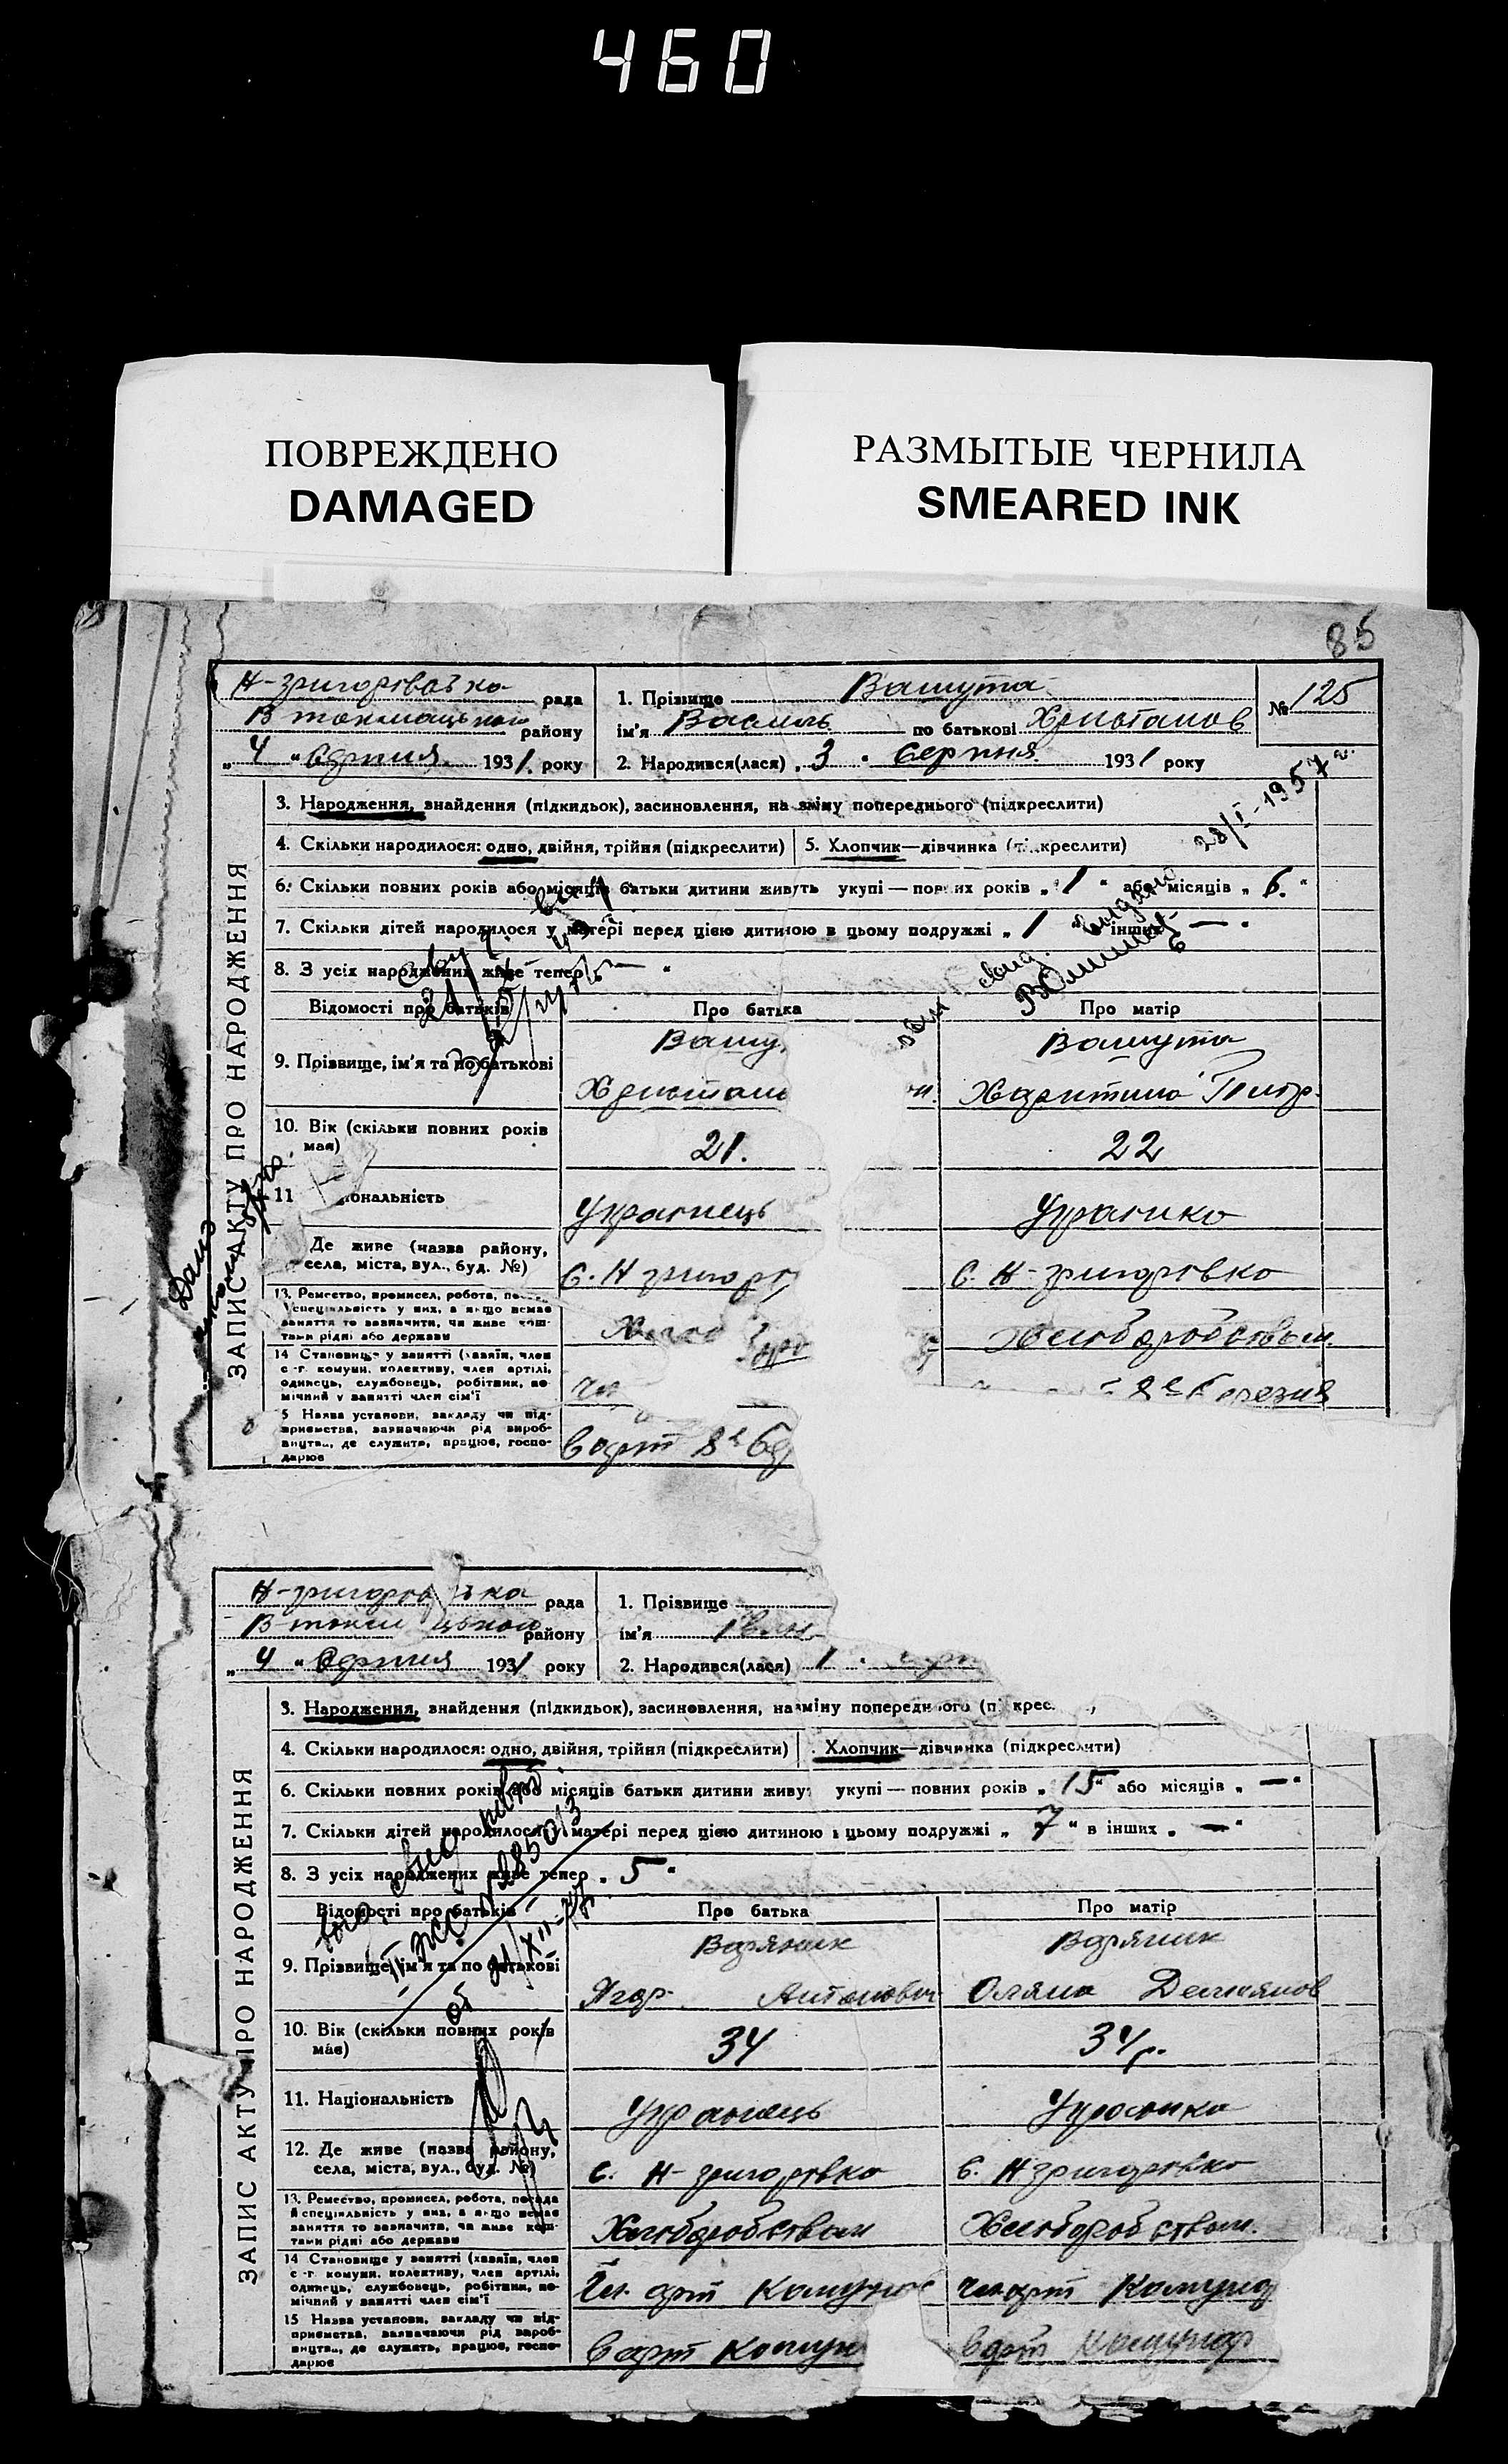 460
ПОВРЕЖДЕНО
DAMAGED
РАЗМЫТЫЕ ЧЕРНИЛА
SMEARED INK
85
Н-григорівська рада
В токмацького району
„ 4 " Серпня 1931. року
1. Прізвище Вашута
ім'я Василь по батькові Христанов
2. Народився(лася) „ 3 " Серпня 1931 року
№ 125
ЗАПИС АКТУ ПРО НАРОДЖЕННЯ
3. Народження, знайдення (підкидьок), засиновлення, на зміну попереднього (підкреслити)
4. Скільки народилося: одно, двійня, трійня (підкреслити)
5. Хлопчик—дівчинка (підкреслити)
28/I-1957 г.
6. Скільки повних років або місяців батьки дитини живуть укупі — повних років „ 1 " або місяців „ 6. "
7. Скільки дітей народилося у матері перед цією дитиною в цьому подружжі „ 1 " в інших „ — "
8. З усіх народжених живе тепер „ — "
Відомості про батьків
Про батька
Про матір
9. Прізвище, ім'я та по батькові
Вашу
Вашута
Харитина Пилр.
10. Вік (скільки повних років має)
21.
22
11 іональність
Українець
Українка
Де живе (назва району, села, міста, вул., буд. №)
с. Н григор
с. Н-григорівка
13. Ремество, промисел, робота, по
спеціяльність у них, а якщо немає
заняття то зазначити, чи живе кош-
тами рідні або держави
Хліборобством.
14 Становище у занятті (хазяїн, член
с.-г. комуни, колективу, член артілі,
одинець, службовець, робітник, по-
мічний у занятті член сім'ї
8е Березня
5 Назва установи, закладу чи під-
приємства, зазначаючи рід вироб-
ництва, де служить, працює, госпо-
дарює
в арт 8е
Н-григорівська рада
В-токмацького району
„ 4 " Серпня 1931 року
1. Прізвище
ім'я
2. Народився(лася) 1
ЗАПИС АКТУ ПРО НАРОДЖЕННЯ
3. Народження, знайдення (підкидьок), засиновлення, на зміну попереднього (п крес
4. Скільки народилося: одно, двійня, трійня (підкреслити)
Хлопчик—дівчинка (підкреслити)
6. Скільки повних років або місяців батьки дитини живуть укупі — повних років „ 15 " або місяців „ — "
7. Скільки дітей народилося у матері перед цією дитиною в цьому подружжі „ 7 " в інших „ — "
8. З усіх народжених живе тепер „ 5 "
Відомості про батьків
Про батька
Про матір
9. Прізвище, ім'я та по батькові
Вареник
Вареник
Ягор Антонович
Оляна Демянов
10. Вік (скільки повних років має)
34
34 р.
11. Національність
Українець
Українка
12. Де живе (назва району, села, міста, вул., буд. №)
с. Н-григорівка
с. Н григорівка
13. Ремество, промисел, робота, посада
й спеціяльність у них, а якщо немає
заняття то зазначити, чи живе кош-
тами рідні або держави
Хліборобством
Хліборобством.
14 Становище у занятті (хазяїн, член
с.-г. комуни, колективу, член артілі,
одинець, службовець, робітник, по-
мічний у занятті член сім'ї
Чл. арт Комунар
Чл. арт Комунар
15 Назва установи, закладу чи під-
приємства, зазначаючи рід вироб-
ництва, де служить, працює, госпо-
дарює
в арт Комун
в арт Комунар